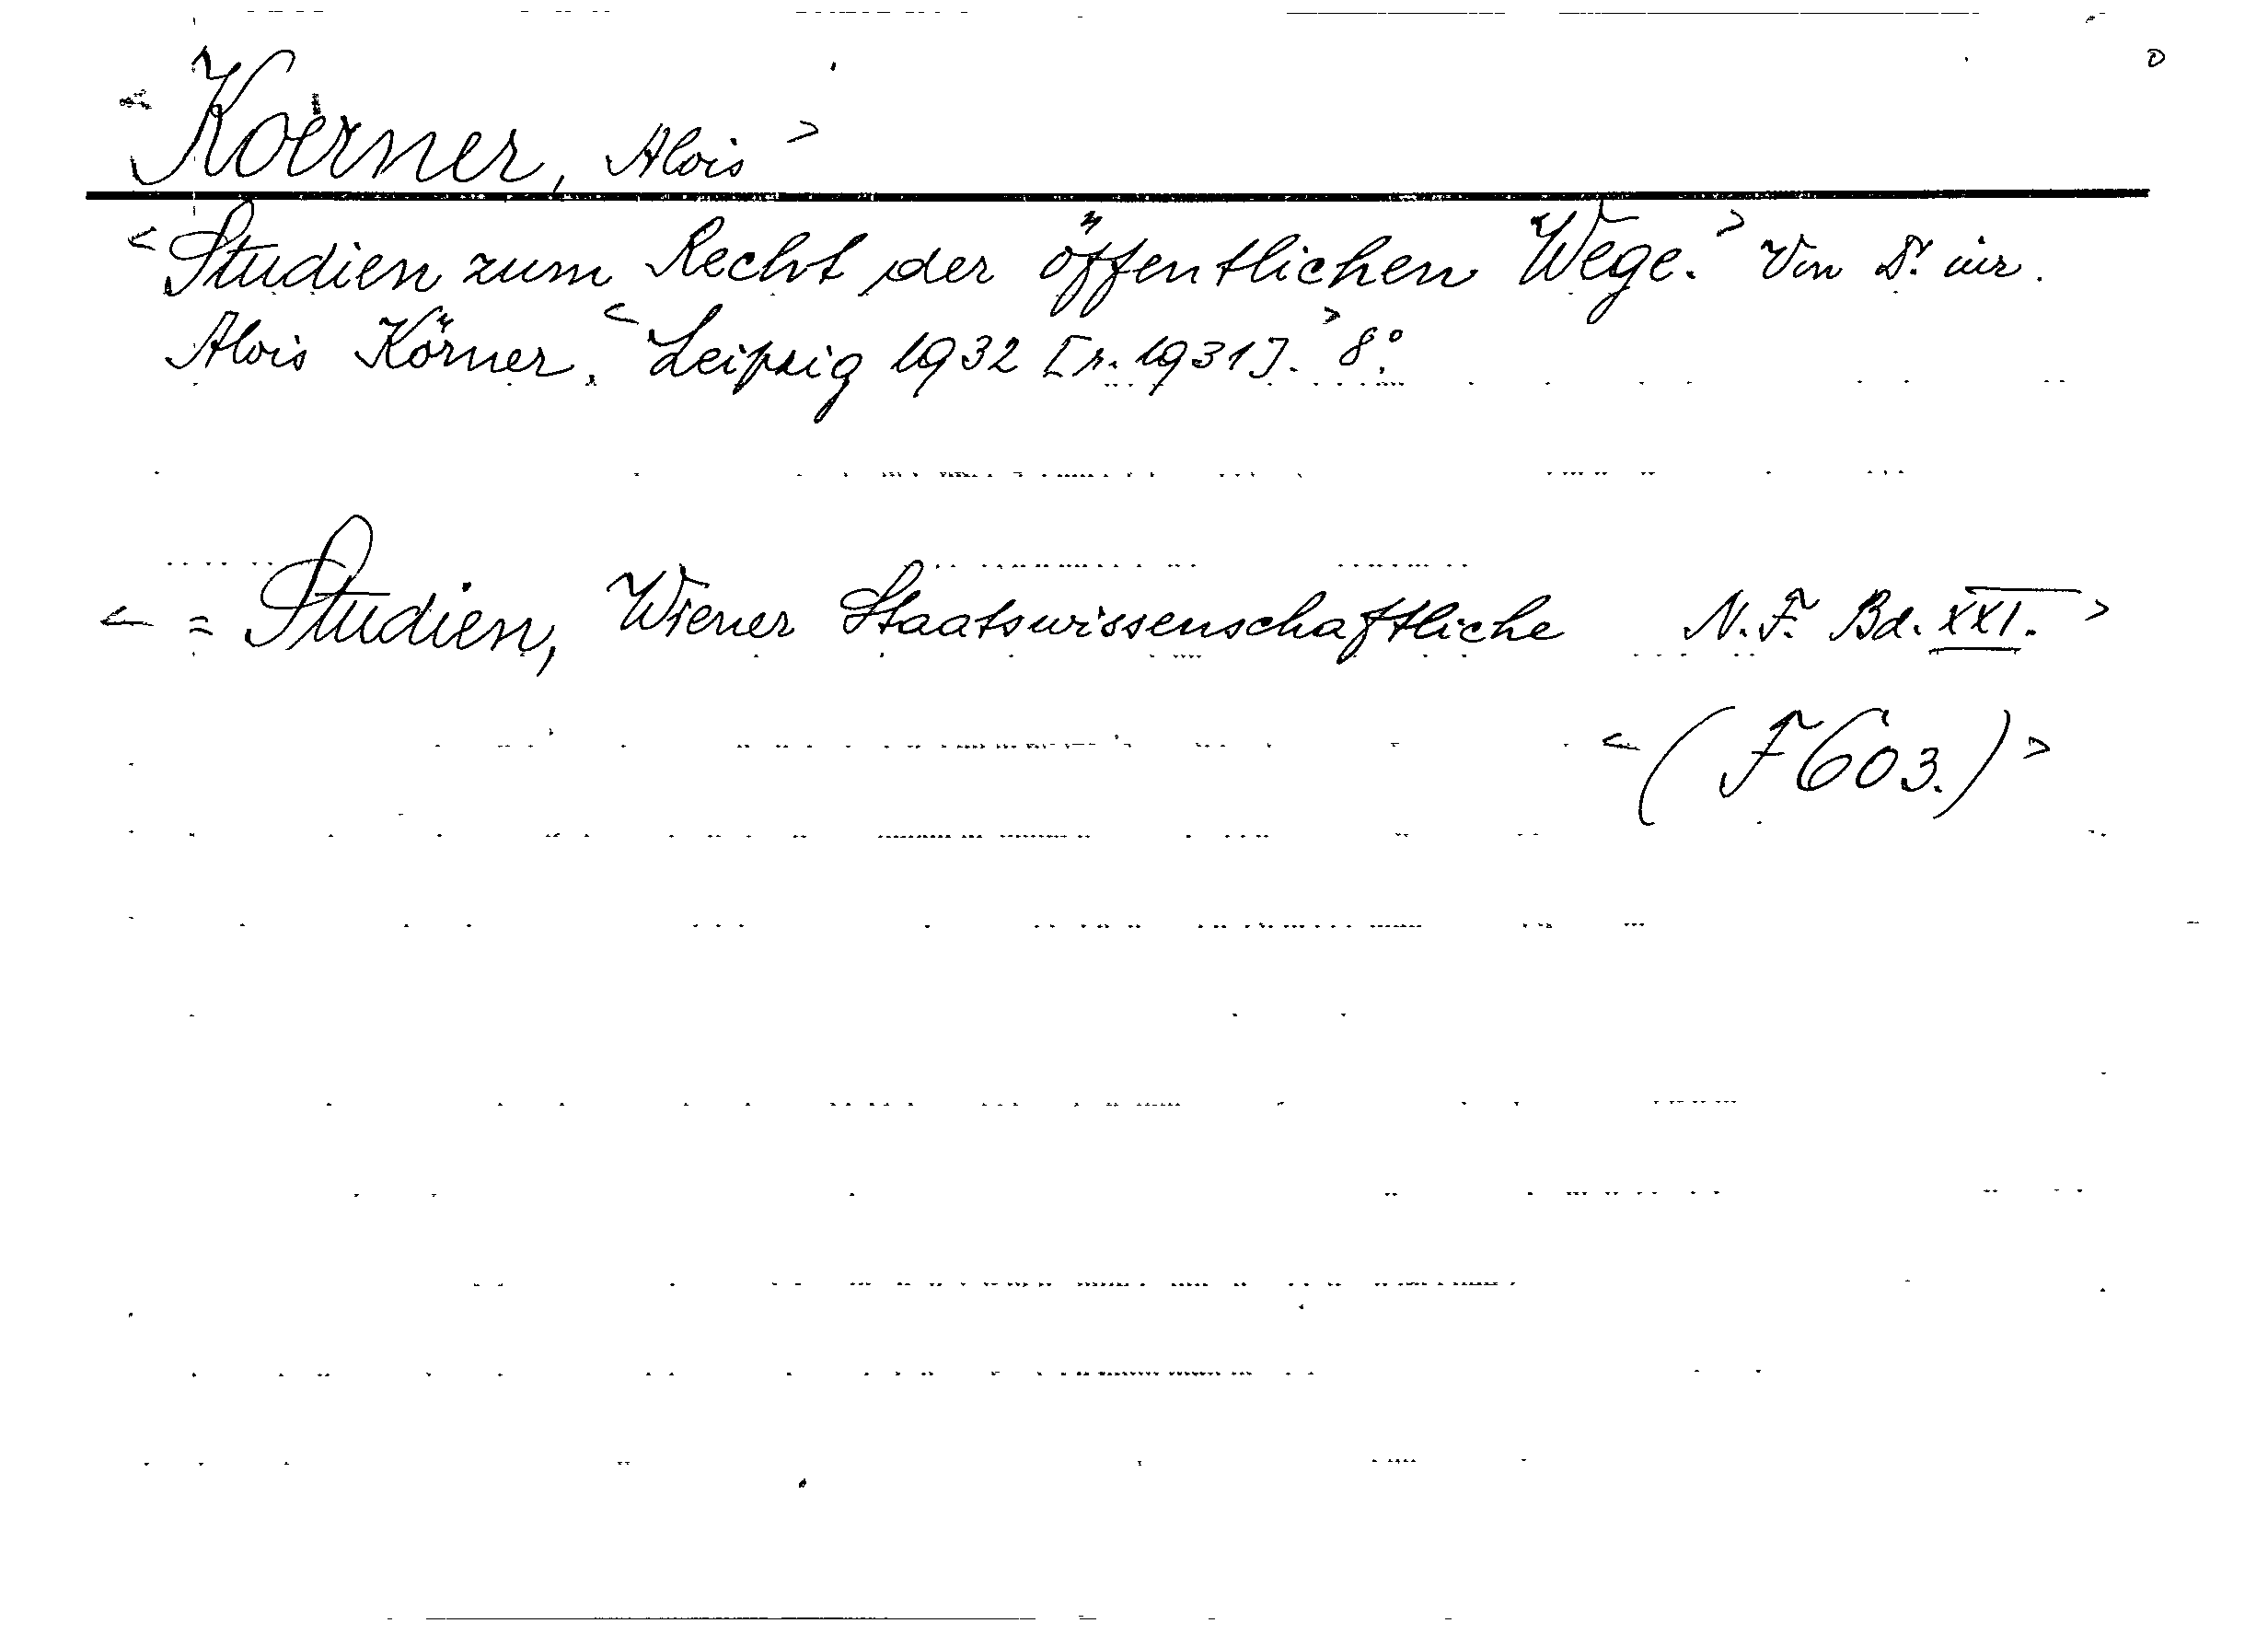 < Koerner, Alois >
< Studien zum Recht der öffentlichen Wege. > Von Dr. iur.
Alois Körner. < Leipzig 1932 [r. 1931]. > 8°.
< = Studien, Wiener Staatswissenschaftliche N. F. Bd. XXI. >
< (F 603.) >